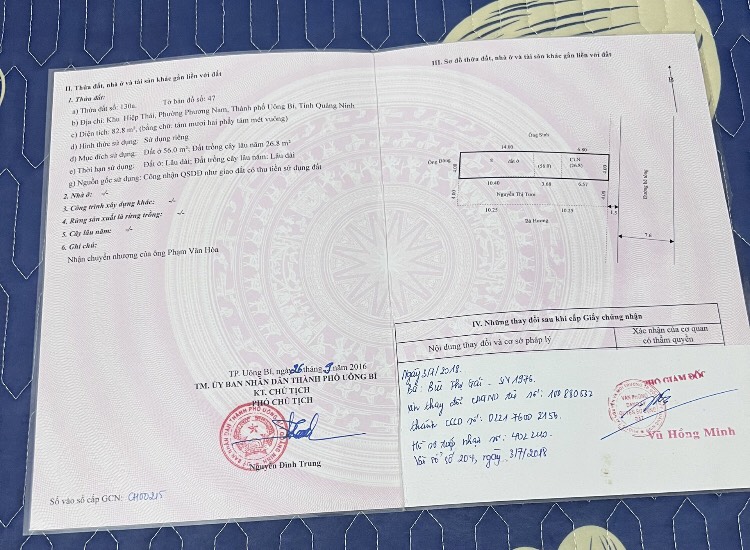 II. Thửa đất, nhà ở và tài sản khác gắn liền với đất
1. Thửa đất:
a) Thửa đất số: 130a, Tờ bản đồ số: 47
b) Địa chỉ: Khu Hiệp Thái, Phường Phương Nam, Thành phố Uông Bí, Tỉnh Quảng Ninh
c) Diện tích: 82.8 m², (bằng chữ: tám mươi hai phẩy tám mét vuông)
d) Hình thức sử dụng: Sử dụng riêng
đ) Mục đích sử dụng: Đất ở 56.0 m²; Đất trồng cây lâu năm 26.8 m²
e) Thời hạn sử dụng: Đất ở: Lâu dài; Đất trồng cây lâu năm: Lâu dài
g) Nguồn gốc sử dụng: Công nhận QSDĐ như giao đất có thu tiền sử dụng đất
2. Nhà ở: -/-
3. Công trình xây dựng khác: -/-
4. Rừng sản xuất là rừng trồng: -/-
5. Cây lâu năm: -/-
6. Ghi chú:
Nhận chuyển nhượng của ông Phạm Văn Hòa
TP. Uông Bí, ngày 26 tháng 9 năm 2016
TM. ỦY BAN NHÂN DÂN THÀNH PHỐ UÔNG BÍ
KT. CHỦ TỊCH
PHÓ CHỦ TỊCH
Nguyễn Đình Trung
Số vào sổ cấp GCN: CH00215
III. Sơ đồ thửa đất, nhà ở và tài sản khác gắn liền với đất
B
Ông Ninh
14.00 6.80
Ông Đông 4.00 đất ở (56.0) CLN (26.8) 4.00
10.40 3.68 6.57
4.00 Nguyễn Thị Tươi 4.00
10.25 10.25
Bà Hương
1.5
7.6
Đường bê tông
IV. Những thay đổi sau khi cấp Giấy chứng nhận
Nội dung thay đổi và cơ sở pháp lý
Xác nhận của cơ quan có thẩm quyền
Ngày 3/7/2018.
Bà: Bùi Thị Gái - SN 1976.
thay đổi CMND từ số: 100880632
thành CCCD số: 0221 7600 2156
Hồ sơ tiếp nhận số: 402
Vào sổ số 204, ngày 3/7/2018
PHÓ GIÁM ĐỐC
Vũ Hồng Minh